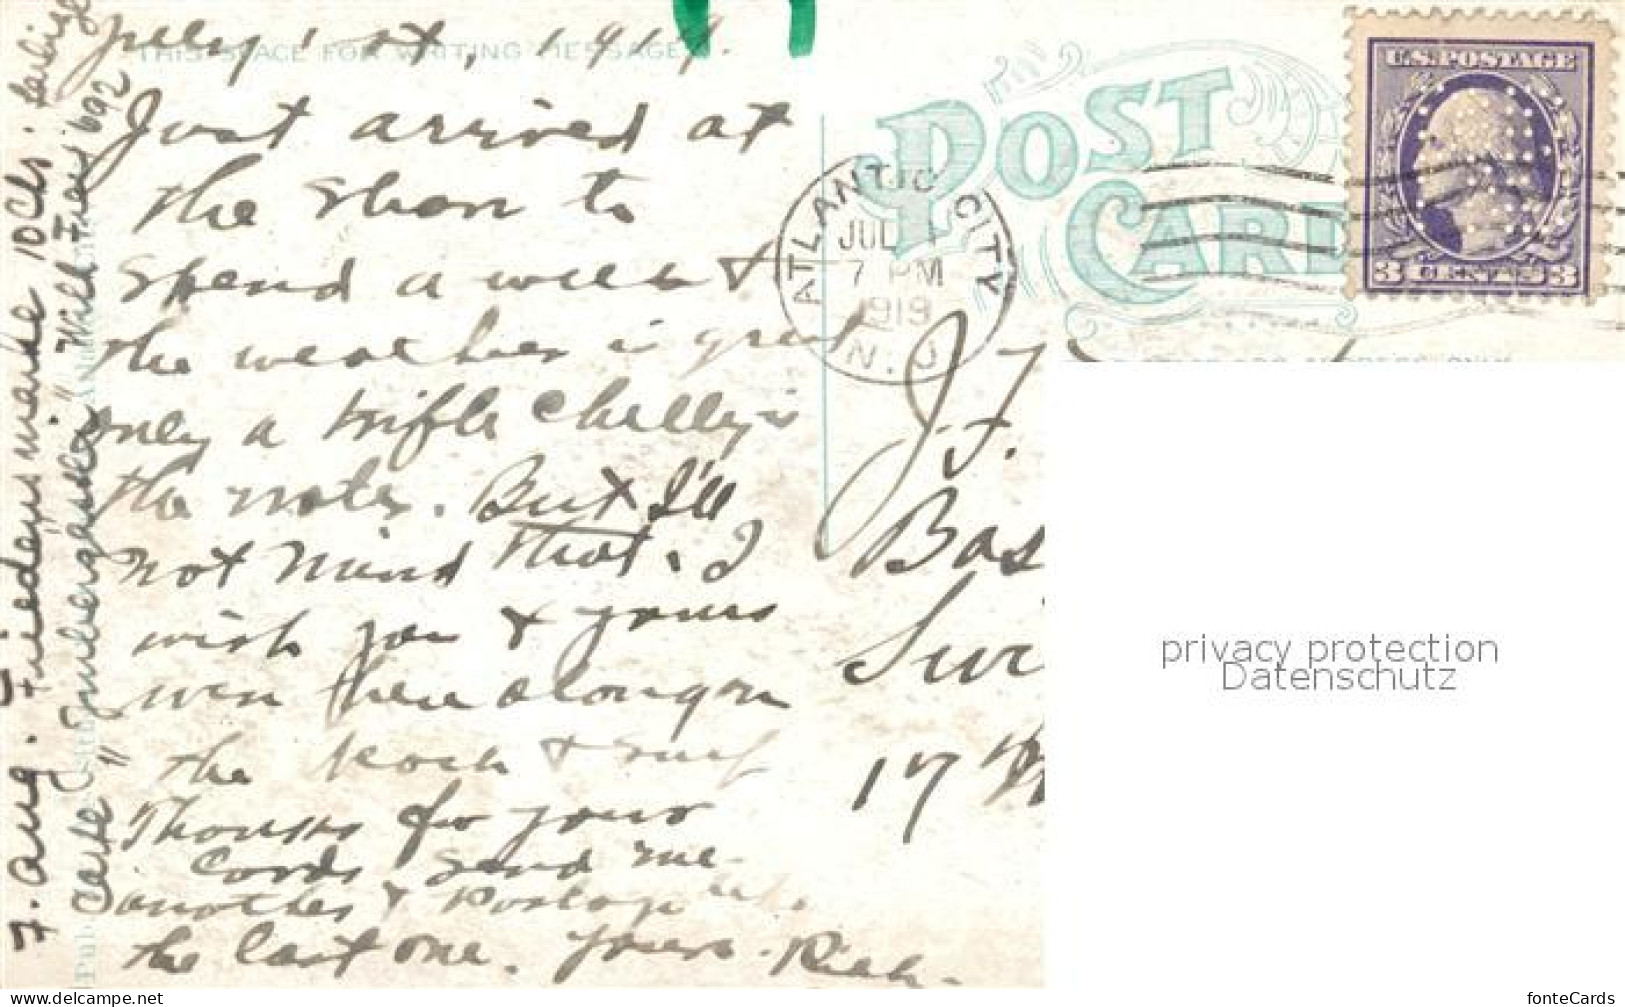 July 1st, 1919.
THIS SPACE FOR WRITING MESSAGE
Just arrived at
the Shore to
spend a week &
the weather is great
only a trifle chilly is
the water. But I'll
not mind that. I
wish you & yours
were here along on
the &
Thanks for your
Cards send me
another &
the last one. Yours. Rich.
POST CARD
ATLANTIC CITY
JUL 1
7 PM
1919
N.J.
U.S. POSTAGE
3 CENTS 3
J. F.
Bas
Swi
17
7. Aug. Friedensmarke 10 Cts.
Karte "Jombergasker" "Wild Frau 692
privacy protection
Datenschutz
www.delcampe.net
fonteCards